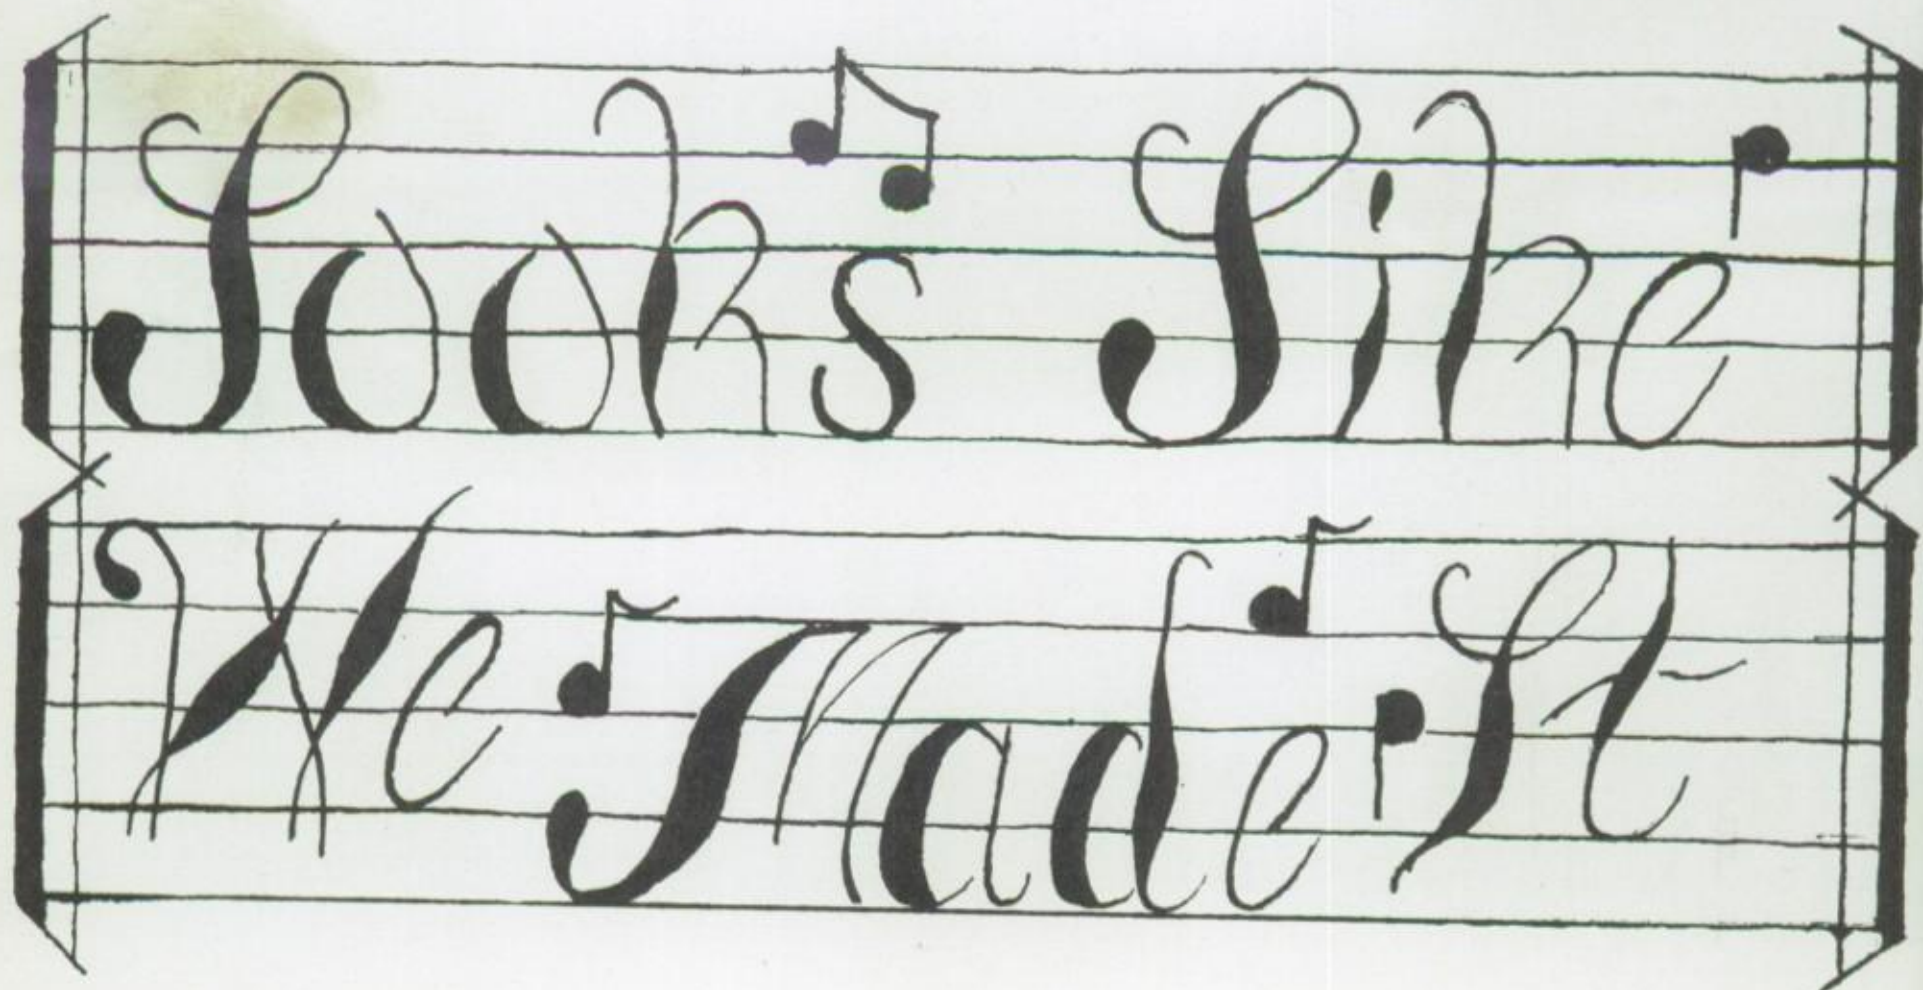 Looks Like
We Made It